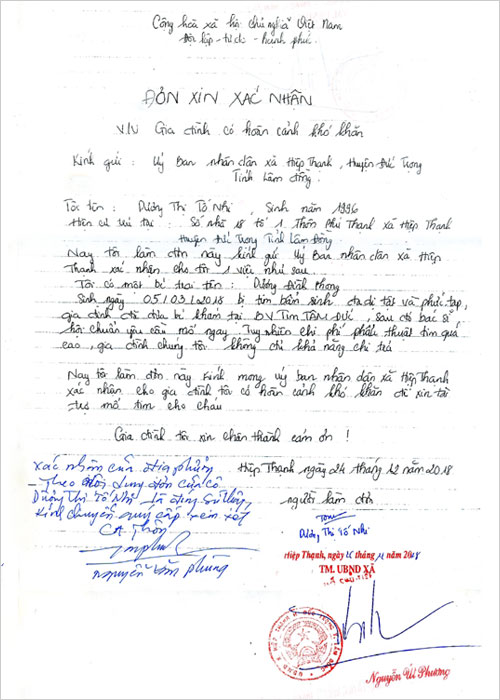 Cộng hoà xã hội chủ nghĩa Việt Nam
Độc lập - tự do - hạnh phúc.
ĐƠN XIN XÁC NHẬN
V/v Gia đình có hoàn cảnh khó khăn
Kính gửi : Uỷ Ban nhân dân xã Hiệp Thạnh, Huyện Đức Trọng
Tỉnh Lâm đồng.
Tôi tên : Dương Thị Tố Nhi , Sinh năm 1996
Hiện cư trú tại : Số nhà 18 tổ 1 Thôn Phú Thạnh xã Hiệp Thạnh
Huyện Đức Trọng Tỉnh Lâm Đồng
Nay tôi làm đơn này kính gửi Uỷ Ban nhân dân xã Hiệp
Thạnh xác nhận cho tôi 1 việc như sau
Tôi có một bé trai tên : Dương Đình Phong
Sinh ngày 05/03/2018 bị tim bẩm sinh đa dị tật và phức tạp,
gia đình đã đưa bé khám tại BV TIM TÂM ĐỨC , sau đó bác sĩ
hội chuẩn yêu cầu mổ ngay. Tuy nhiên chi phí phẩu thuật tim quá
cao , gia đình chúng tôi không có khả năng chi trả
Nay tôi làm đơn này kính mong uỷ ban nhân dân xã Hiệp Thạnh
xác nhận cho gia đình tôi có hoàn cảnh khó khăn để xin tài
trợ mổ tim cho cháu
Gia đình tôi xin chân thành cám ơn !
Hiệp Thạnh ngày 24 tháng 12 năm 2018
người làm đơn
Dương Thị Tố Nhi
xác nhận của địa phương
Theo nội dung đơn của cô
Dương Thị Tố Nhi là đúng sự thật,
Kính chuyển quý cấp xem xét
CA Thôn
Nguyễn Văn Phùng
Hiệp Thạnh, ngày tháng 12 năm 2018
TM. UBND XÃ
Nguyễn Uí Phương